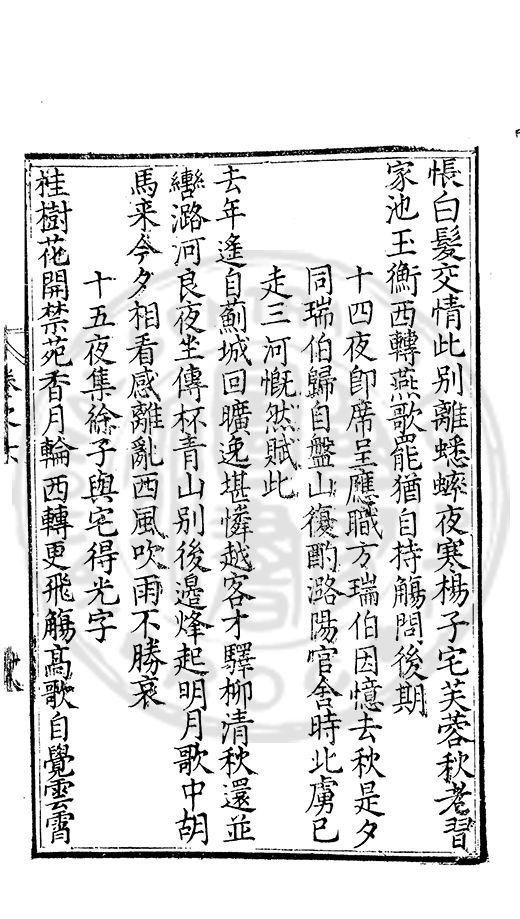 悵白髮交情此别離蟋蟀夜寒楊子宅芙蓉秋老習
家池玉衡西轉燕歌罷猶自持觴問後期
十四夜即席呈應職方瑞伯因憶去秋是夕
同瑞伯歸自盤山復酌潞陽官舍時北虜已
走三河慨然賦此
去年逢自薊城回曠逸堪憐越客才驛柳清秋還並
轡潞河良夜坐傳杯青山别後邉烽起明月歌中胡
馬来今夕相看感離亂西風吹雨不勝哀
十五夜集徐子與宅得光字
桂樹花開禁苑香月輪西轉更飛觴高歌自覺雲霄